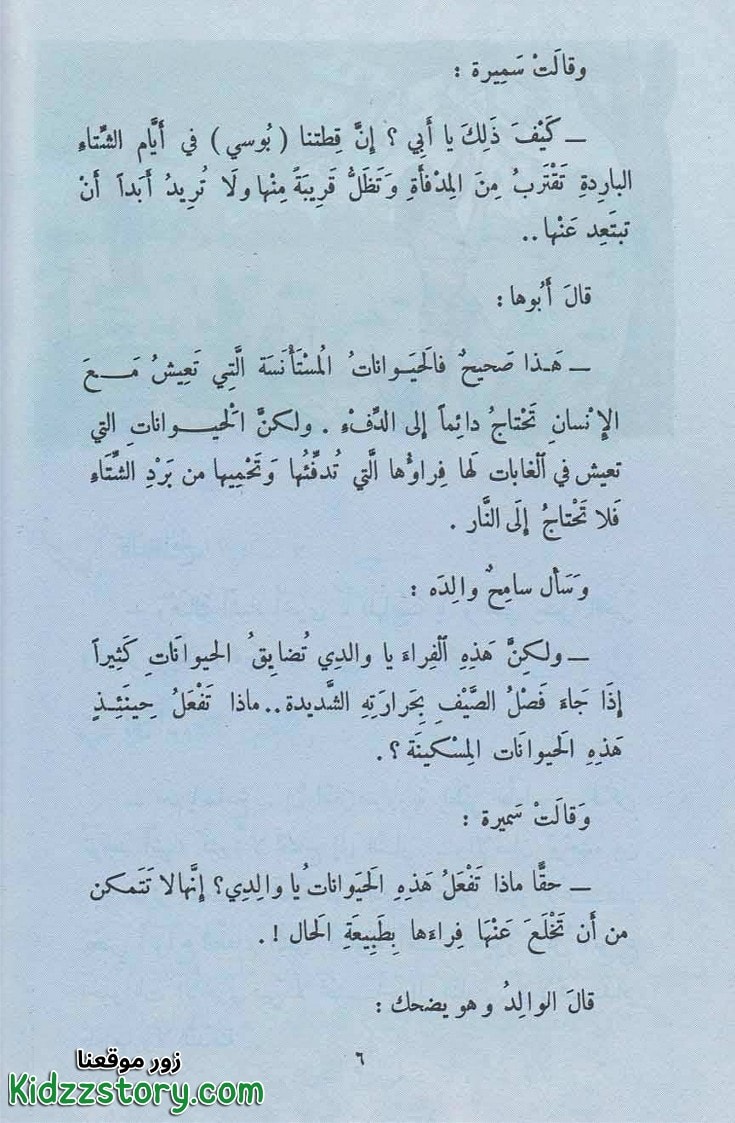 وقالَتْ سَمِيرة :
ـ كَيْفَ ذَلِكَ يا أَبِي ؟ إنَّ قِطتنا ( بُوسي ) في أَيَّام الشِّتاءِ
البارِدةِ تَقْتَرِبُ مِنَ المِدْفأَةِ وَتَظَلُّ قَرِيبَةً مِنْها ولَا تُرِيدُ أَبَداً أَنْ
تبتَعِد عَنْها ..
قالَ أَبُوها :
ـ هَـذا صَحيحٌ فالحَيَـوانات ُ المُسْتَأْنَسَة الَّتِي تَعِيشُ مَـــعَ
الإِنْسانِ تَحْتاجُ دائِماً إلى الدِّفْءِ . ولكنَّ الْحَيـوانـاتِ التي
تعيش في الغابات لَها فِراوُها الَّتي تُدفِّئُها وَتَحْمِيها من بَرْدِ الشِّتَاءِ
فَلا تَحْتاجُ إلَى النَّار .
وَسَأَل سامِحٌ والِدَه :
ـ ولكِنَّ هَذِهِ الْفِراءَ يا والدِي تُضايِقُ الحيوانَاتِ كَثِيراً
إذَا جَاءَ فَصْلُ الصَّيْفِ بِحَرارَتِهِ الشَّديدة .. ماذا تَفْعَلُ حِينَئِـذٍ
هَذِهِ الحَيوانَات المِسْكينَة ؟ .
وَقالَتْ سَميرة :
ـ حقًّا ماذا تَفْعَلُ هَذِهِ الحَيَوانَاتُ يا والِدِي؟ إنَّها لا تَتَمكن
من أَن تَخْلَعَ عَنْهَا فِراءَها بِطَبِيعَةِ الحال ! .
قالَ الوالِدُ وهو يضحك :
٦
زور موقعنا
Kidzzstory.com